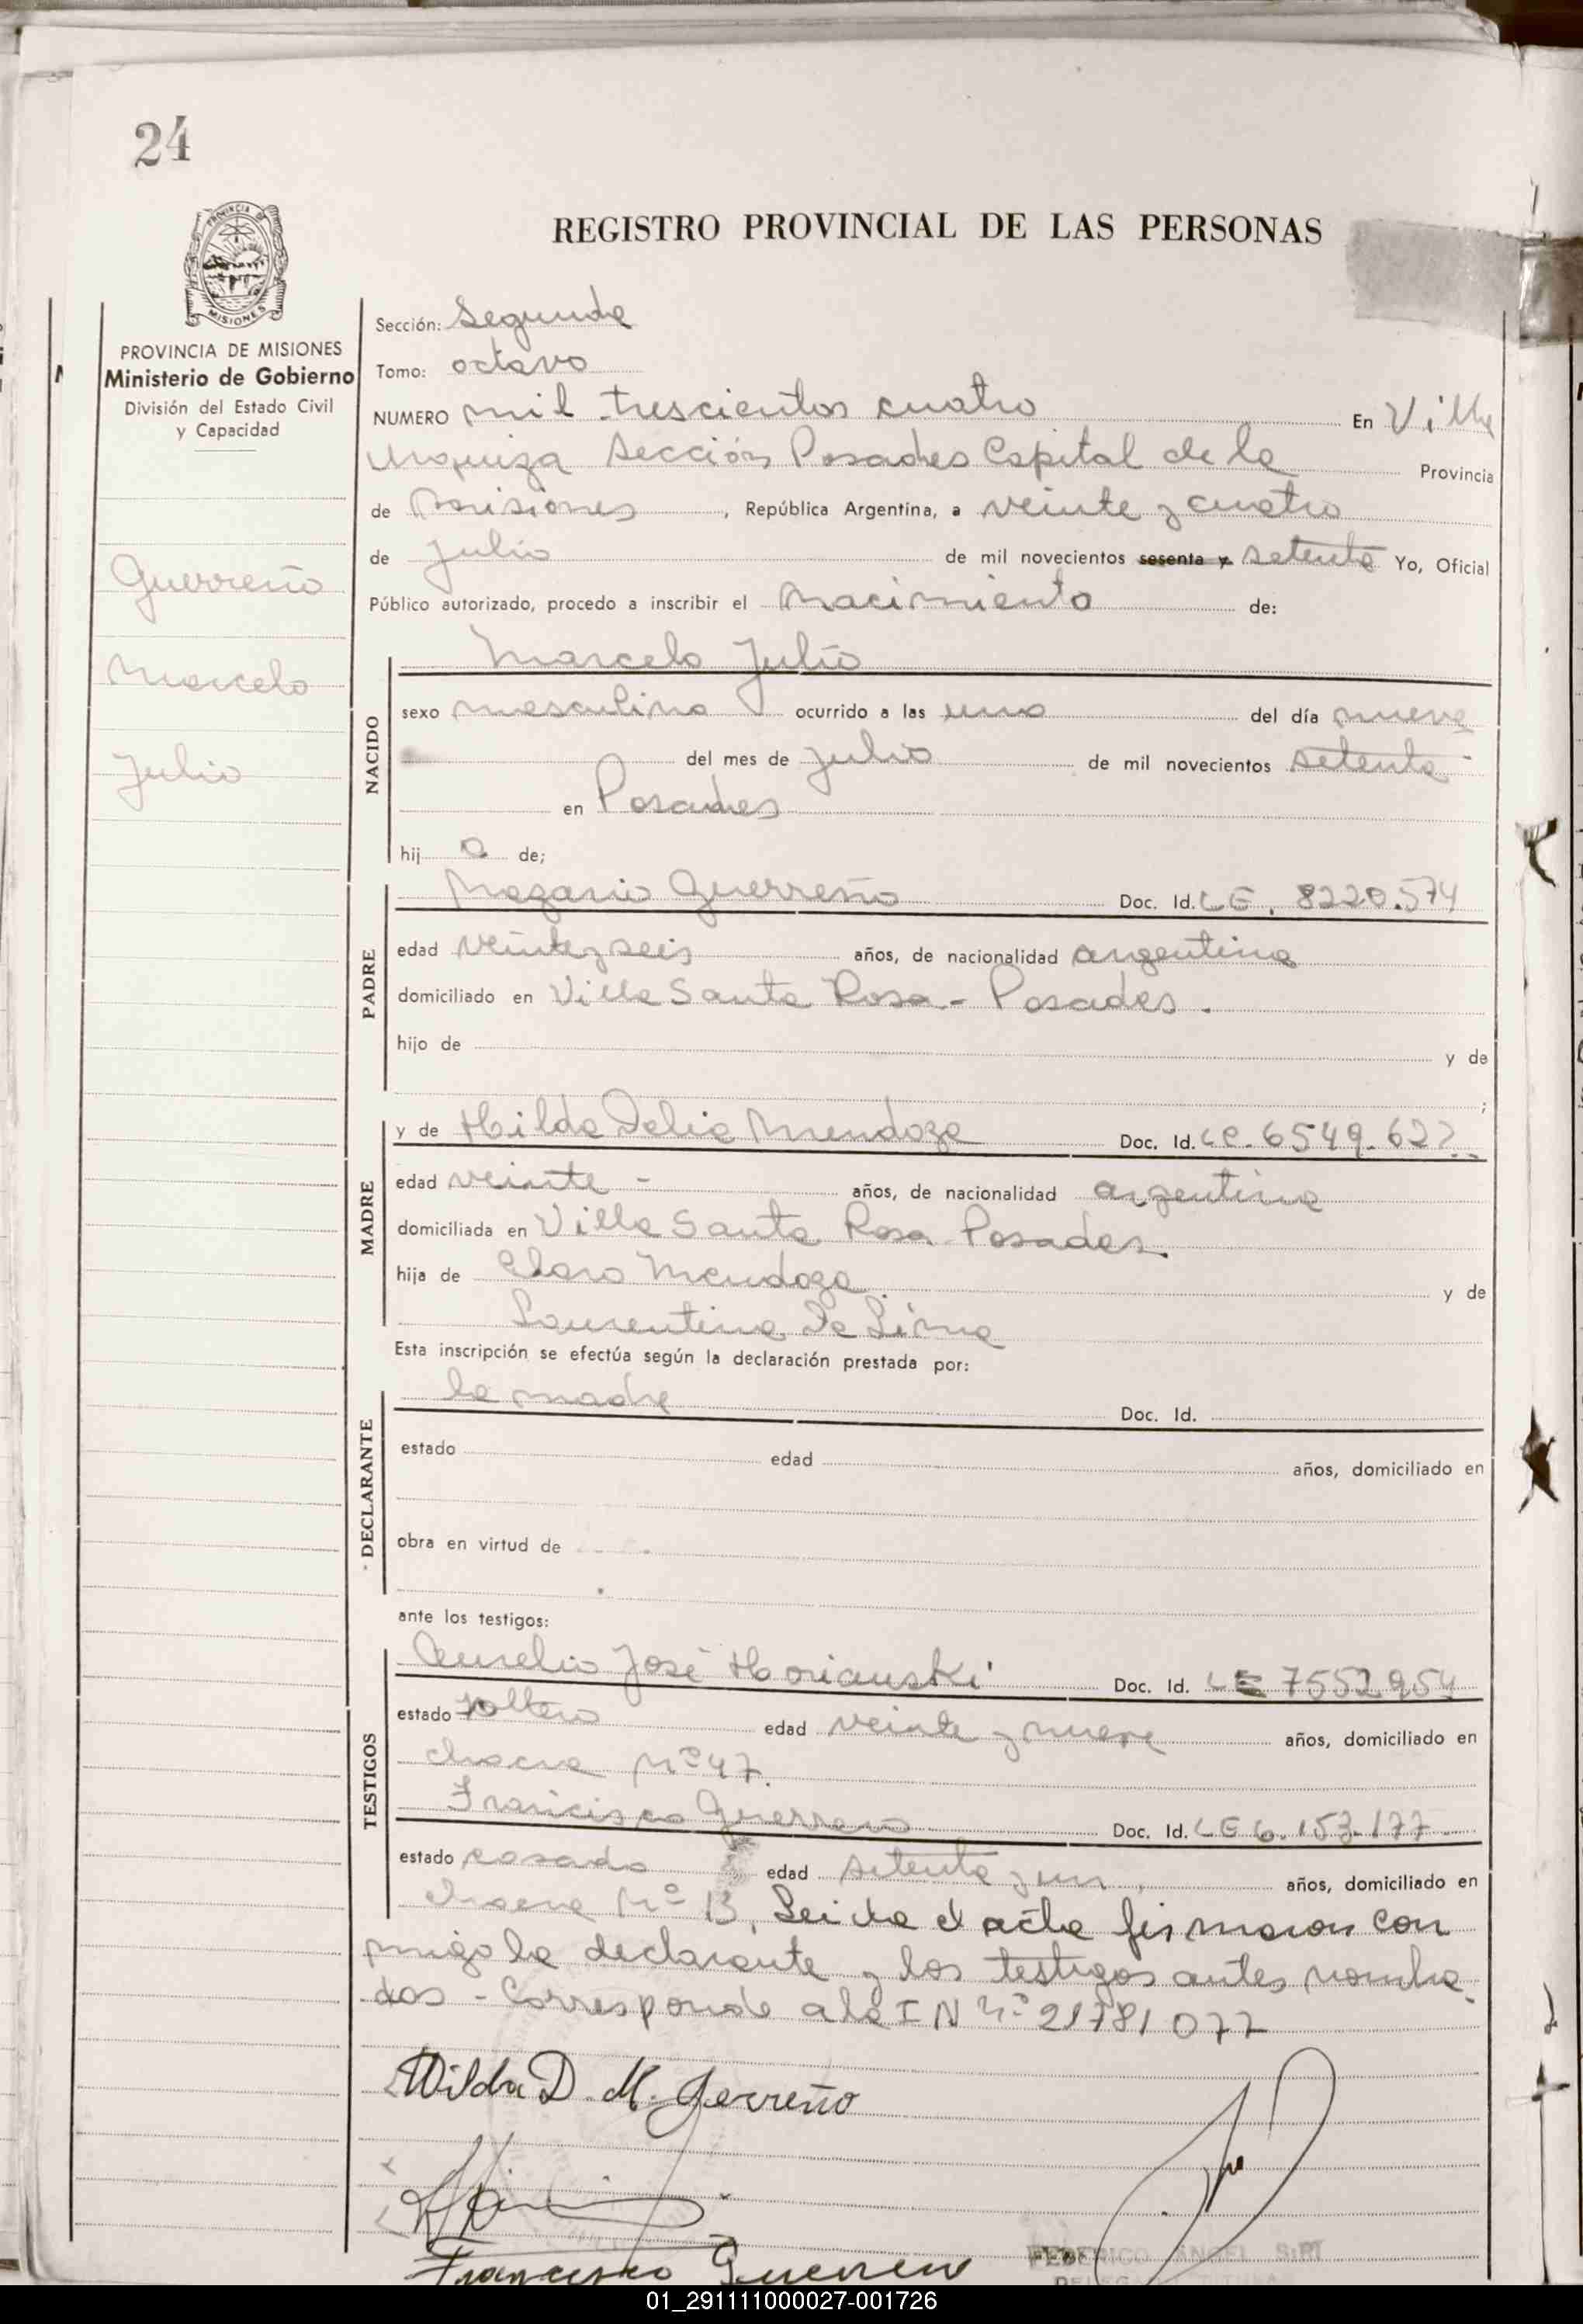 24
REGISTRO PROVINCIAL DE LAS PERSONAS
PROVINCIA DE MISIONES
Ministerio de Gobierno
División del Estado Civil
y Capacidad
Guerreño
Marcelo
Julio
Sección: Segunda
Tomo: octavo
NUMERO mil trescientos cuatro En Villa
Urquiza Sección Posadas Capital de la Provincia
de Misiones, República Argentina, a veinte y cuatro
de Julio de mil novecientos sesenta y setenta Yo, Oficial
Público autorizado, procedo a inscribir el nacimiento de:
NACIDO
Marcelo Julio
sexo masculino ocurrido a las una del día nueve
del mes de Julio de mil novecientos setenta
en Posadas
hij o de;
PADRE
Guerreño Doc. Id. LE. 8220.574
edad veinte y seis años, de nacionalidad argentina
domiciliado en Villa Santa Rosa - Posadas.
hijo de y de
;
MADRE
y de Hilda Delia Mendoza Doc. Id. LC. 6549.627
edad veinte - años, de nacionalidad argentina
domiciliada en Villa Santa Rosa Posadas.
hija de Claro Mendoza y de
Laurentina De Lima
Esta inscripción se efectúa según la declaración prestada por:
DECLARANTE
la madre Doc. Id.
estado edad años, domiciliado en
obra en virtud de
ante los testigos:
TESTIGOS
Aurelio José Horianski Doc. Id. LE 7552954
estado soltero edad veinte y nueve años, domiciliado en
chacra Nº 47.
Francisco Guerreño Doc. Id. LE 6.153.177
estado casado edad setenta y un años, domiciliado en
chacra Nº 13, Leida el acta firmaron con
migo la declarante y los testigos antes nombra
dos - Corresponde a la I N Nº 21781077
Hilda D. M. Gerreño
Francisco Guerreño
FEDERICO ANGEL
01_291111000027-001726